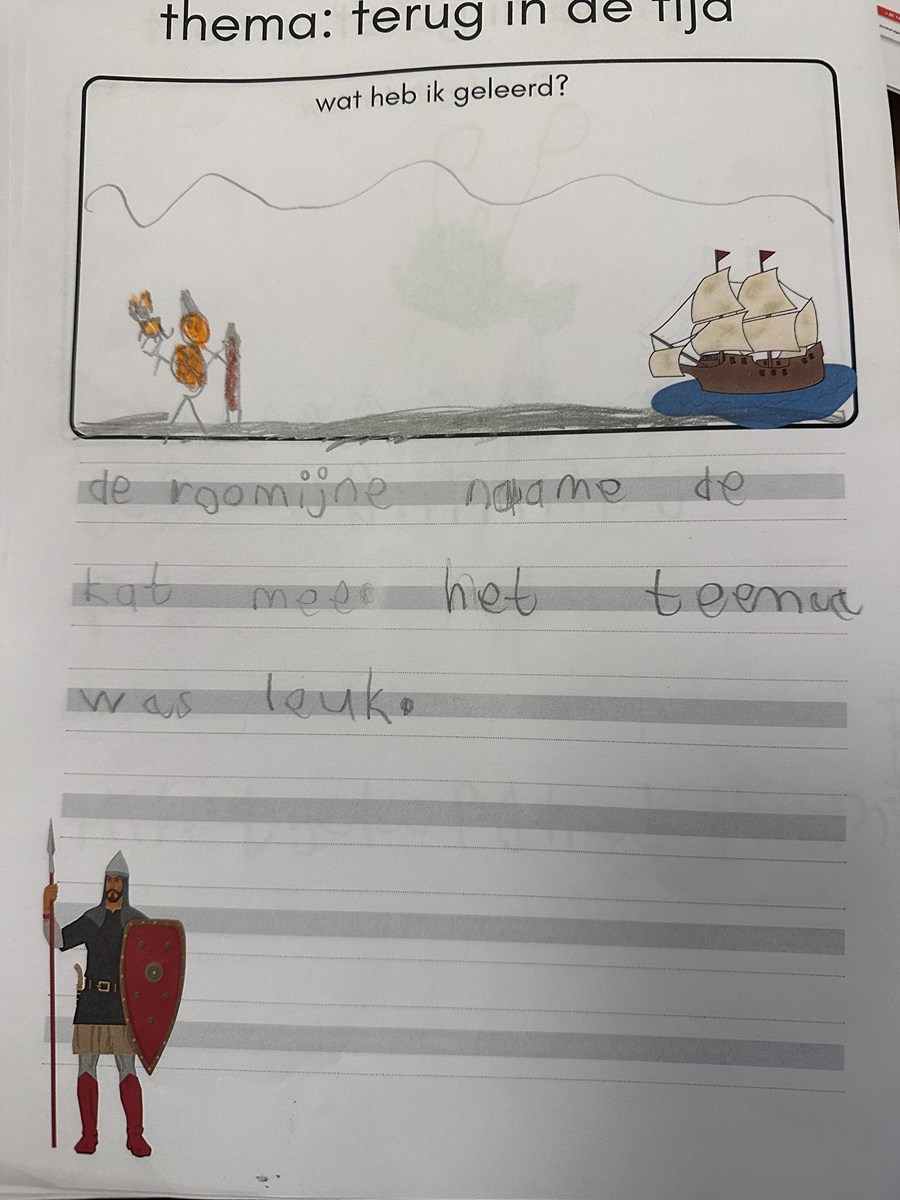 thema: terug in de tijd
wat heb ik geleerd?
de roomijne naame de
kat mee het teema
was leuk.